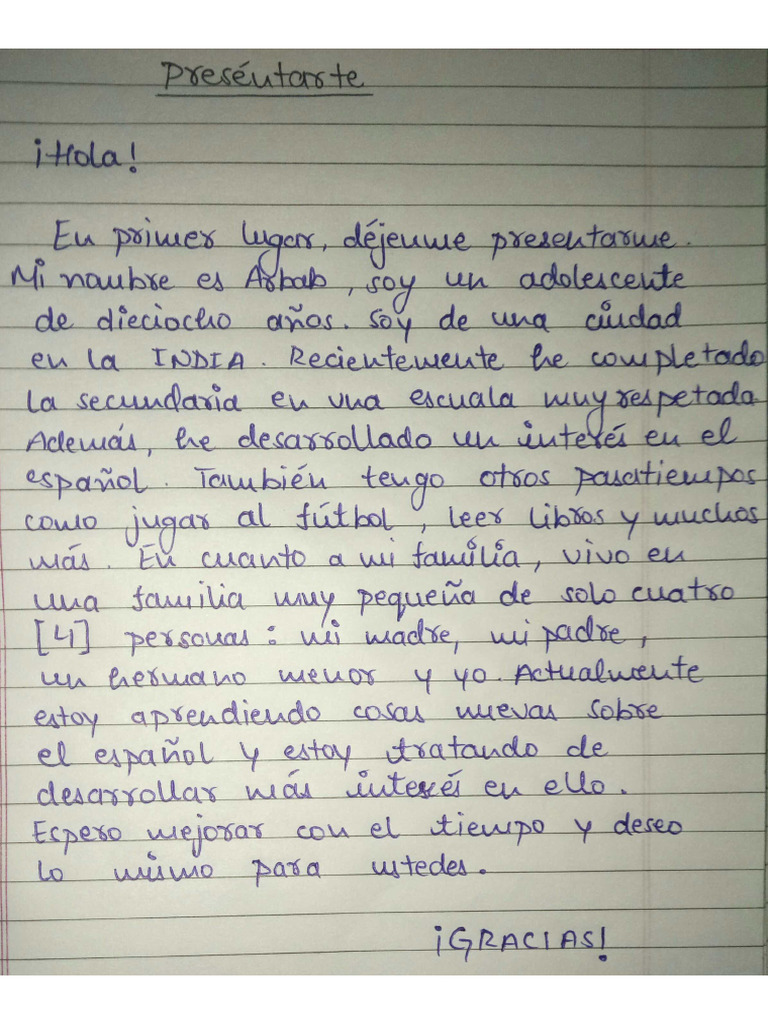 Preséntarte
¡Hola!
En primer lugar, déjenme presentarme.
Mi nombre es Arbab, soy un adolescente
de dieciocho años. Soy de una ciudad
en la INDIA. Recientemente he completado
la secundaria en una escuala muy respetada
Además, he desarrollado un interés en el
español. También tengo otros pasatiempos
como jugar al fútbol, leer libros y muchos
más. En cuanto a mi família, vivo en
una familia muy pequeña de solo cuatro
[4] personas: mi madre, mi padre,
un hermano menor y yo. Actualmente
estoy aprendiendo cosas nuevas sobre
el español y estoy tratando de
desarrollar más interés en ello.
Espero mejorar con el tiempo y deseo
lo mismo para ustedes.
¡GRACIAS!